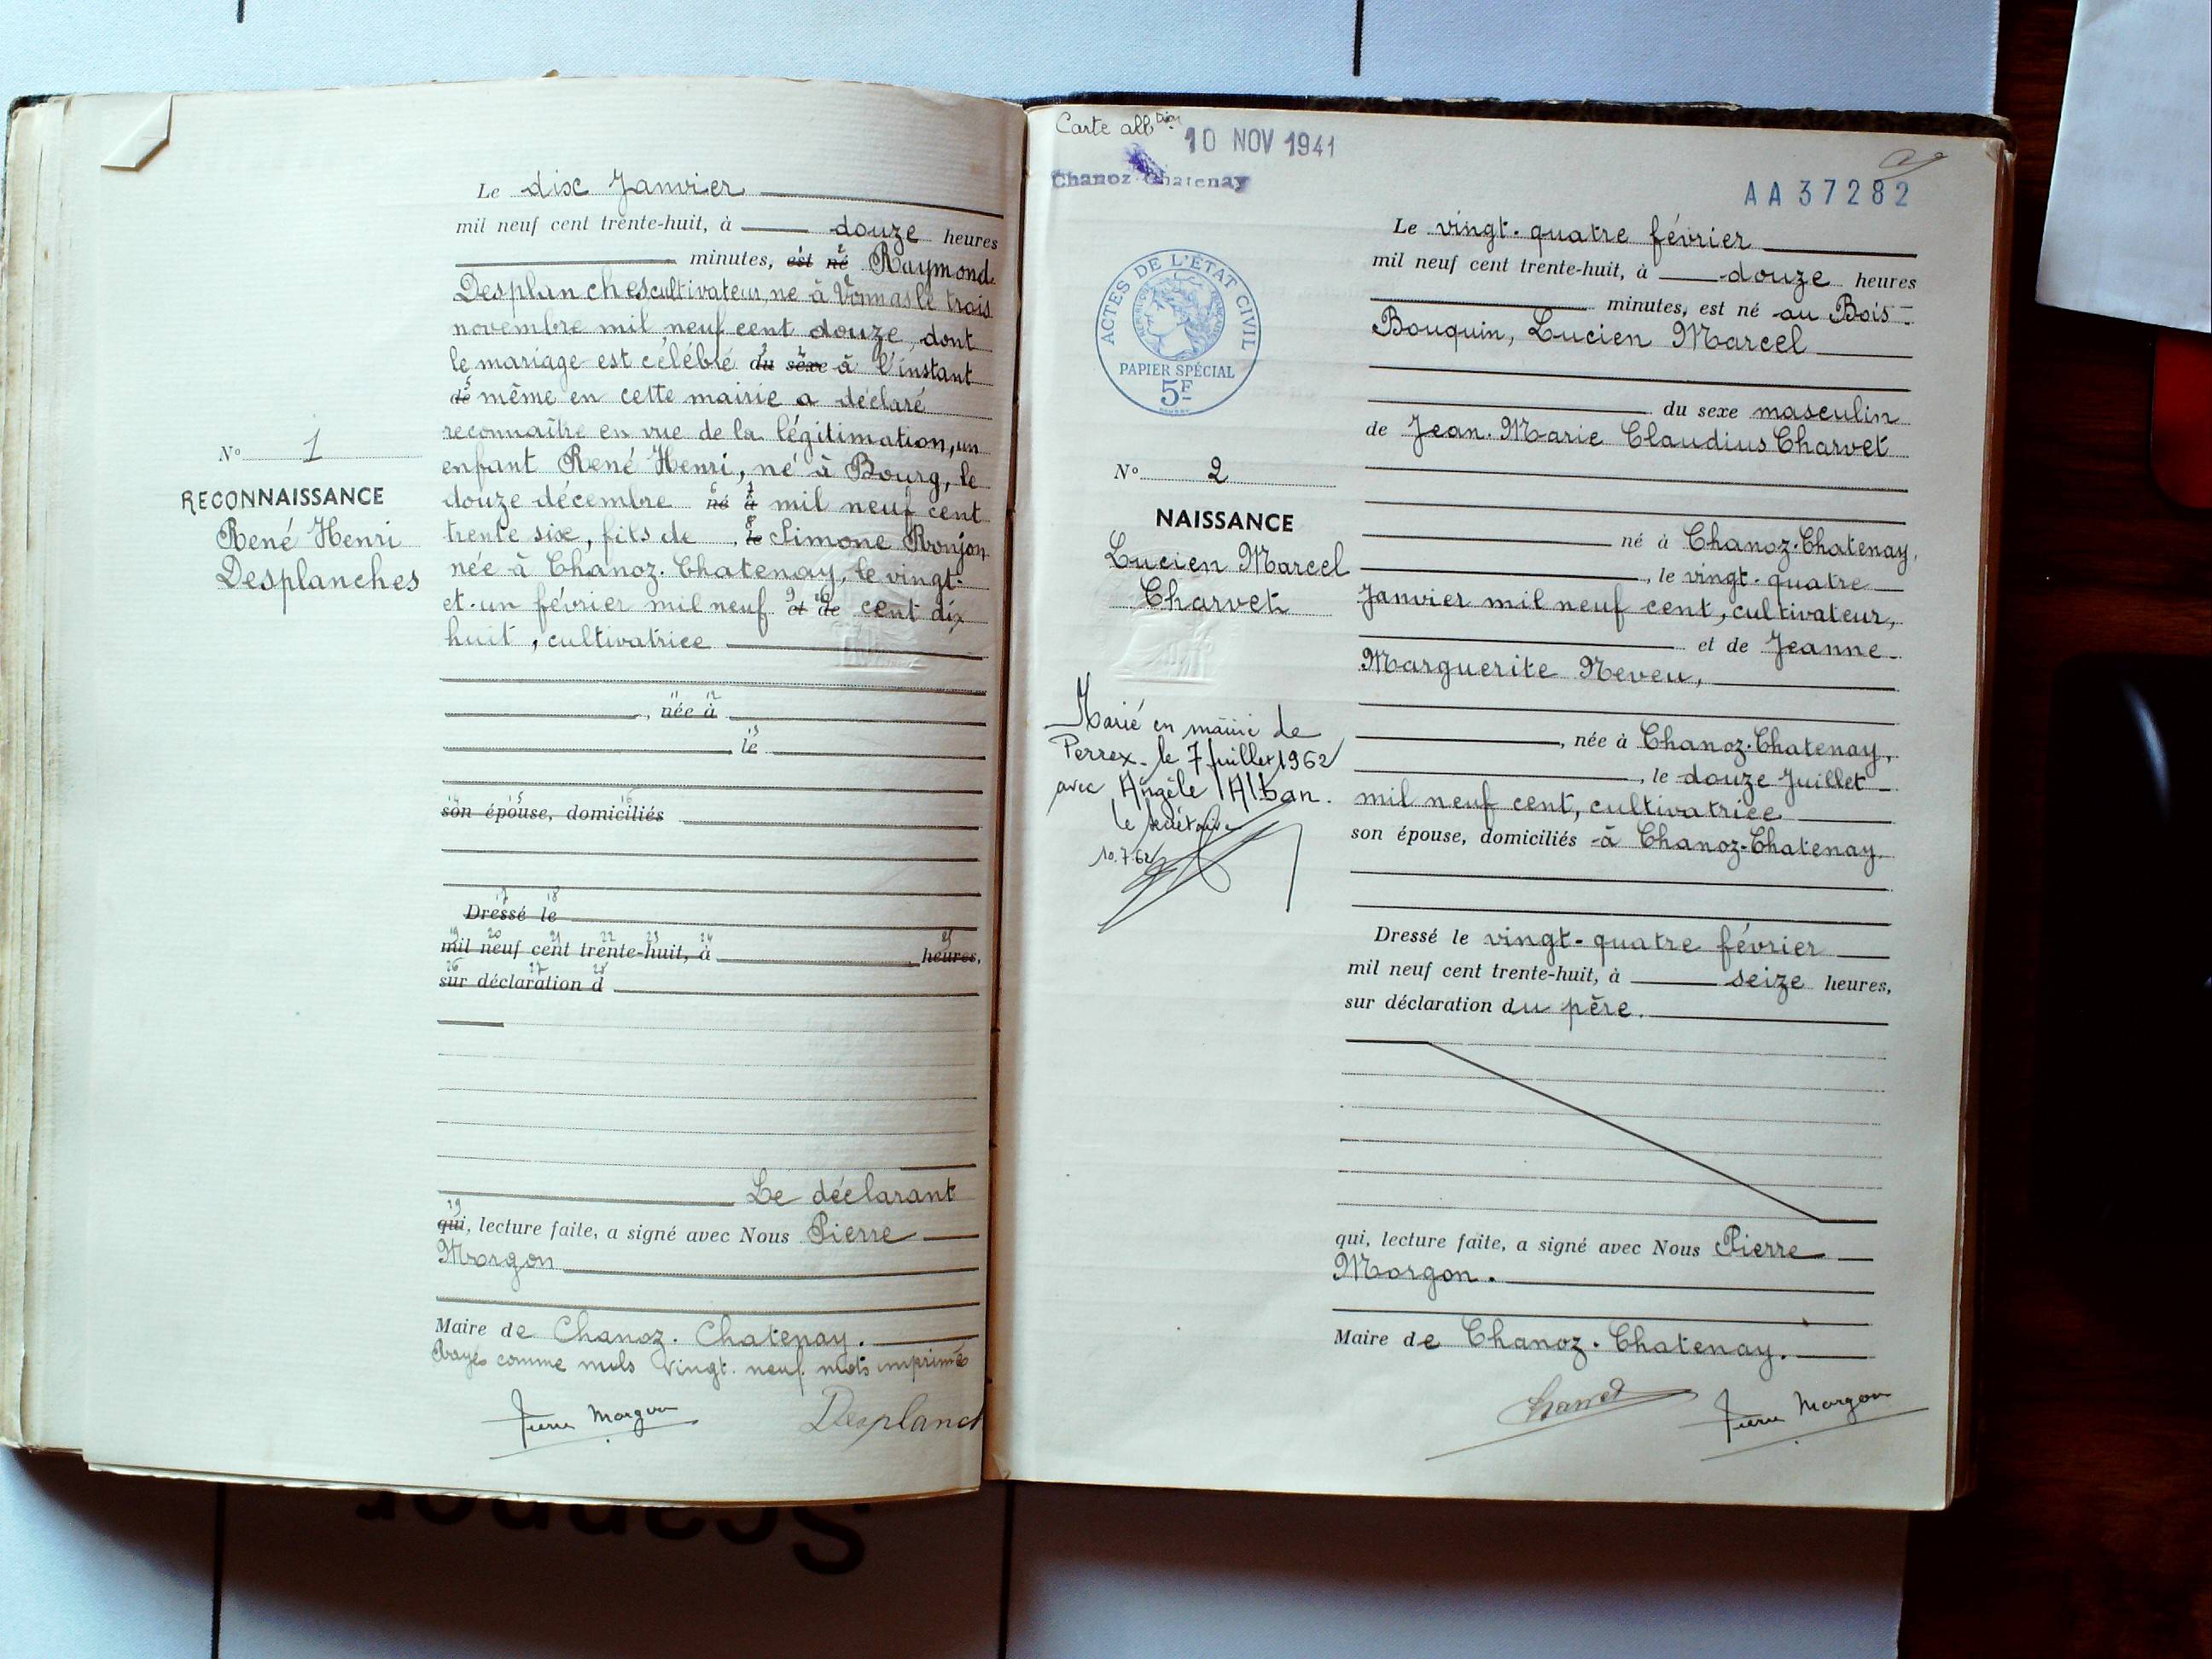 Le dix Janvier
mil neuf cent trente-huit, à douze heures
minutes, est né Raymond
Desplanches cultivateur, né à Vonnas le trois
novembre mil neuf cent douze, dont
le mariage est célébré du sexe à l'instant
de même en cette mairie a déclaré
reconnaître en vue de la légitimation, un
enfant René Henri, né à Bourg, le
douze décembre né à mil neuf cent
trente six, fils de le Simone Ronjon
née à Chanoz-Chatenay, le vingt-
et-un février mil neuf et de cent dix
huit, cultivatrice
, née à
le
son épouse, domiciliés
Dressé le
mil neuf cent trente-huit, à heures,
sur déclaration d
Le déclarant
qui, lecture faite, a signé avec Nous Pierre
Morgon
Maire de Chanoz-Chatenay.
Rayés comme nuls vingt-neuf mots imprimés
Pierre Morgon Desplanch
N° 1
RECONNAISSANCE
René Henri
Desplanches
Carte alb
10 NOV 1941
Chanoz-Chatenay
AA 37282
ACTES DE L'ÉTAT CIVIL
PAPIER SPÉCIAL
5F
N° 2
NAISSANCE
Lucien Marcel
Charvet
Marié en mairie de
Perrex le 7 Juillet 1962
avec Angèle Alban.
le secrétaire
10.7.62
Le vingt-quatre février
mil neuf cent trente-huit, à douze heures
minutes, est né au Bois-
Bouquin, Lucien Marcel
du sexe masculin
de Jean-Marie Claudius Charvet
né à Chanoz-Chatenay,
, le vingt-quatre
Janvier mil neuf cent, cultivateur,
et de Jeanne
Marguerite Neveu,
, née à Chanoz-Chatenay,
, le douze Juillet
mil neuf cent, cultivatrice
son épouse, domiciliés à Chanoz-Chatenay
Dressé le vingt-quatre février
mil neuf cent trente-huit, à seize heures,
sur déclaration du père.
qui, lecture faite, a signé avec Nous Pierre
Morgon.
Maire de Chanoz-Chatenay.
Charvet Pierre Morgon
Scanner